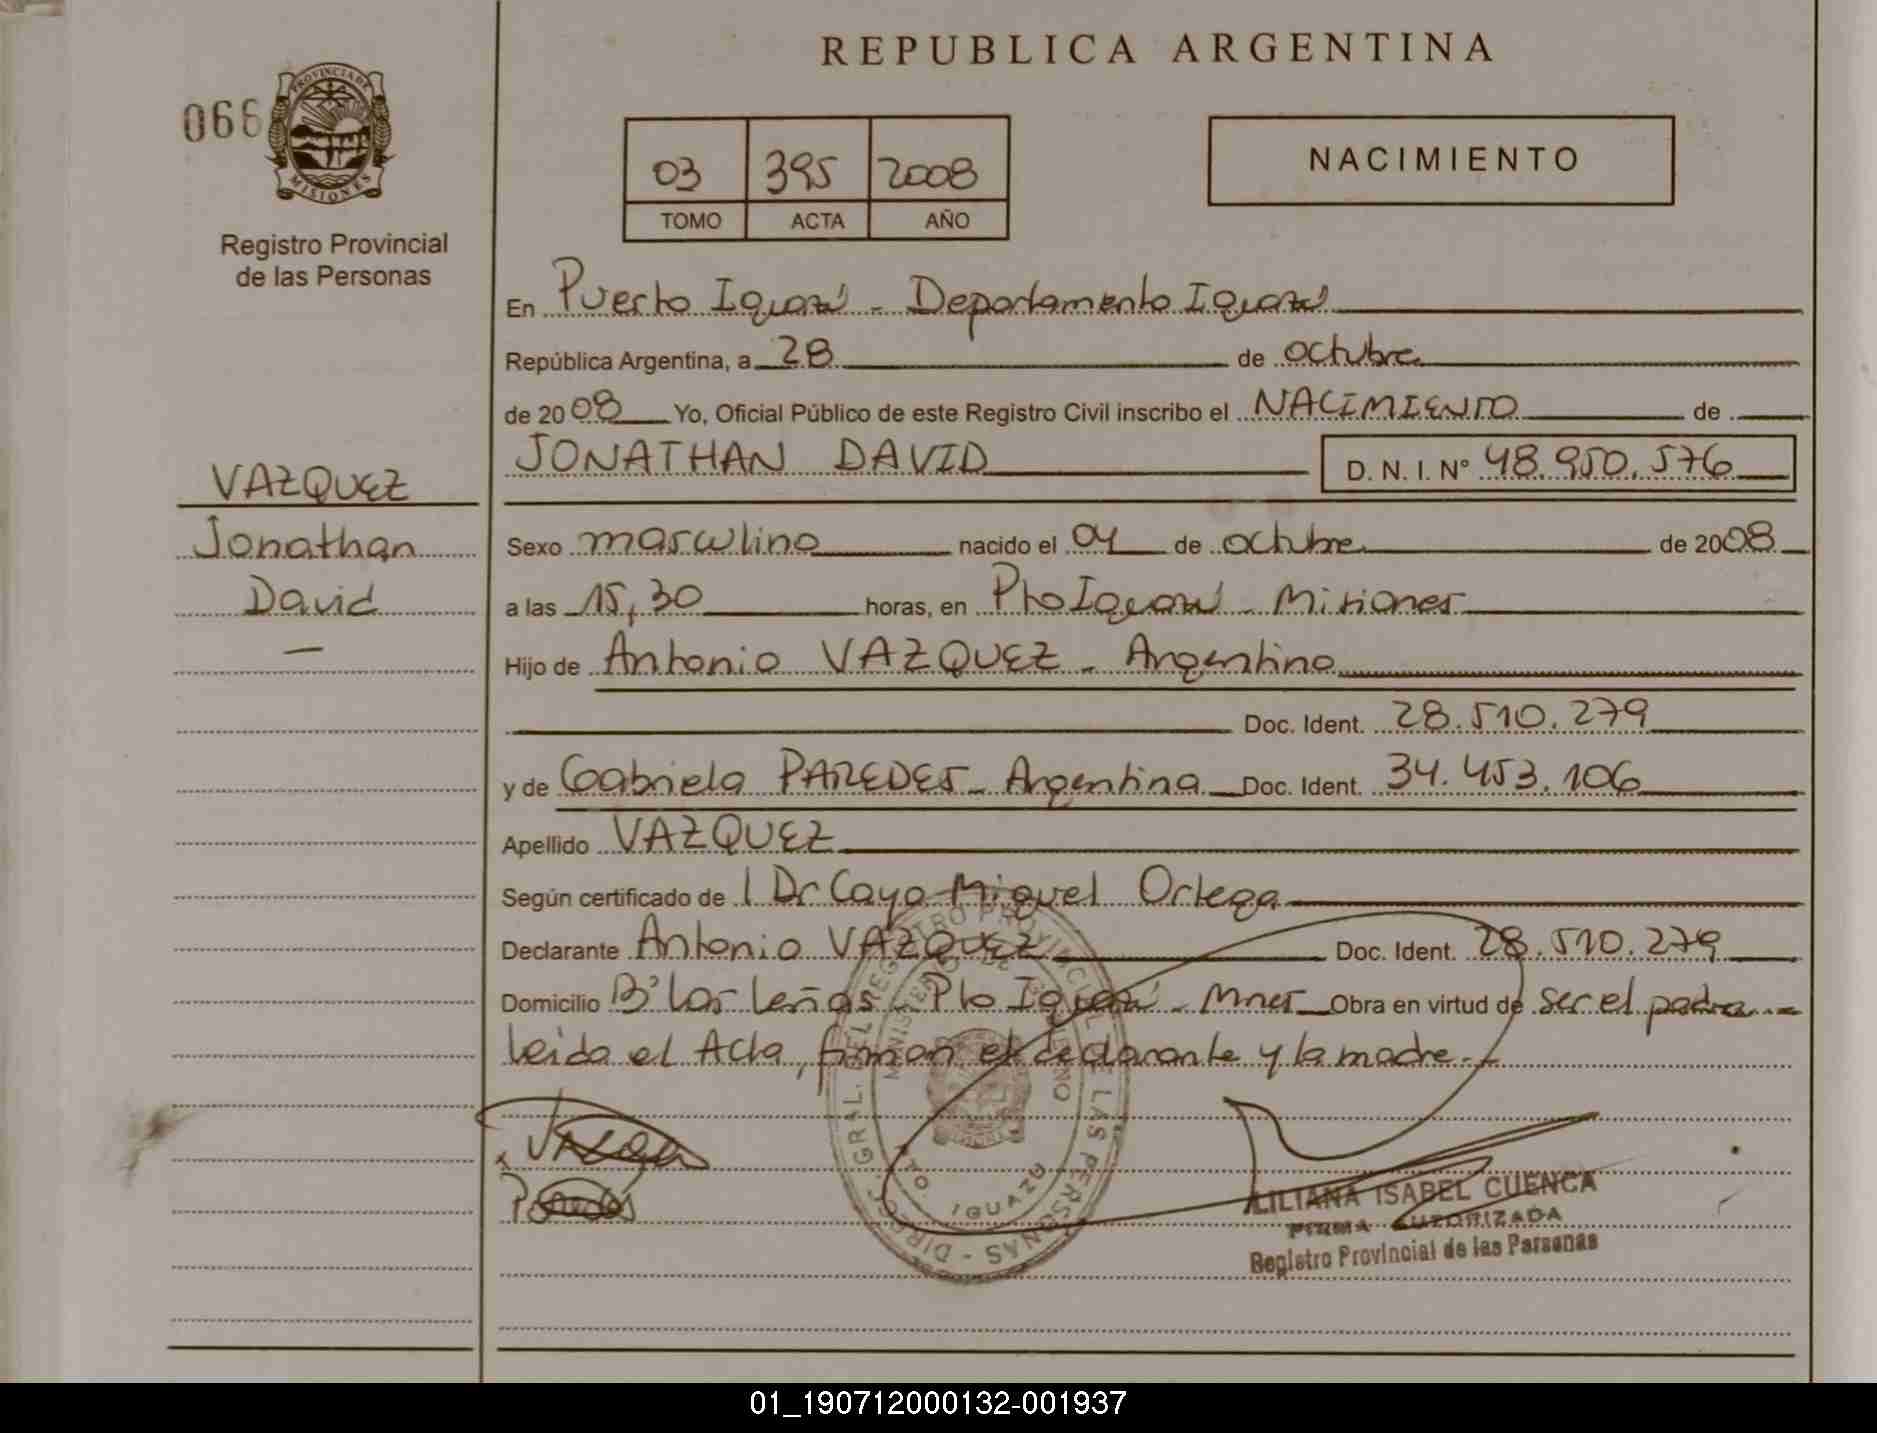 REPUBLICA ARGENTINA
066
PROVINCIA DE
MISIONES
Registro Provincial
de las Personas
03 395 2008
TOMO ACTA AÑO
NACIMIENTO
En Puerto Iguazú - Departamento Iguazú
República Argentina, a 28 de octubre
de 2008 Yo, Oficial Público de este Registro Civil inscribo el NACIMIENTO de
JONATHAN DAVID D. N. I. Nº 48.950.576
VAZQUEZ
Jonathan
David
Sexo masculino nacido el 04 de octubre de 2008
a las 15,30 horas, en Pto Iguazú - Misiones
Hijo de Antonio VAZQUEZ - Argentino
Doc. Ident. 28.510.279
y de Gabriela PAREDES - Argentina Doc. Ident. 34.453.106
Apellido VAZQUEZ
Según certificado de l Dr Cayo Miguel Ortega
Declarante Antonio VAZQUEZ Doc. Ident. 28.510.279
Domicilio Bº Las Leñas - Pto Iguazú - Mnes Obra en virtud de ser el padre
leida el Acta, firman el declarante y la madre.-
DIREC. GRAL. DEL REGISTRO PROVINCIAL DE LAS PERSONAS
MINISTERIO DE GOBIERNO
PTO. IGUAZU
Paredes
LILIANA ISABEL CUENCA
FIRMA AUTORIZADA
Registro Provincial de las Personas
01_190712000132-001937